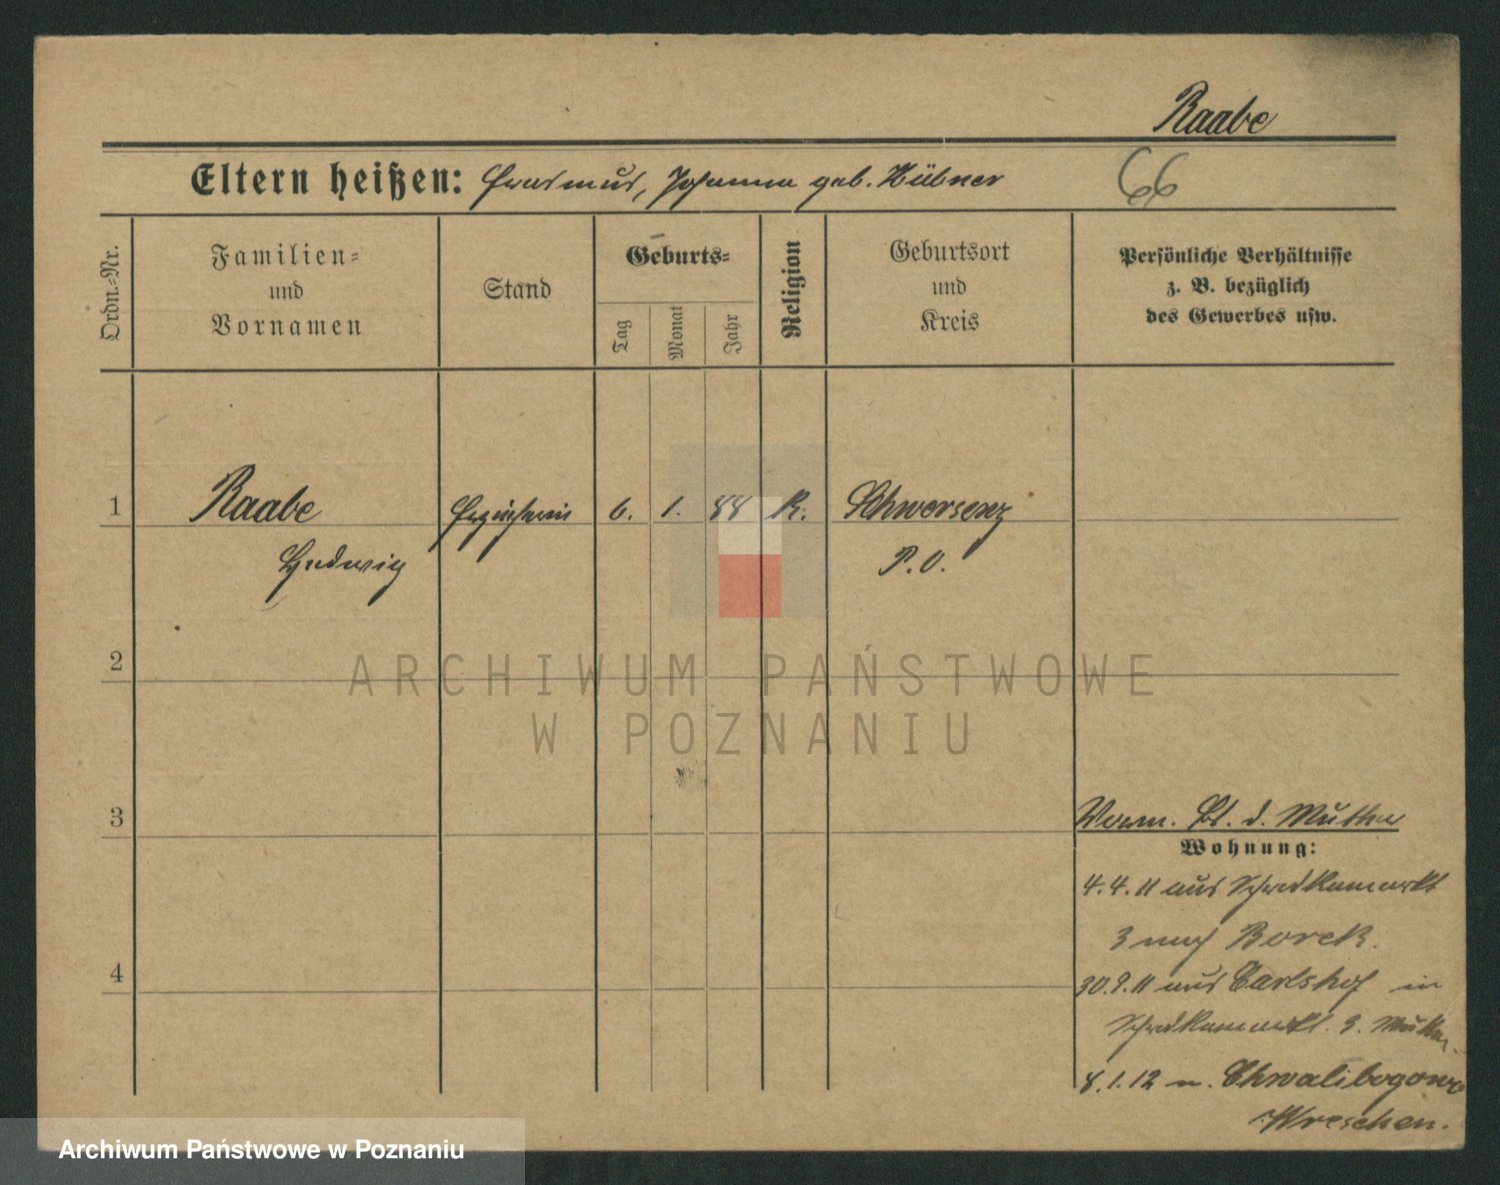 Raabe
Eltern heißen: Erasmus, Johanna geb. Hübner
66
Ordn.-Nr.
Familien-
und
Vornamen
Stand
Geburts-
Tag
Monat
Jahr
Religion
Geburtsort
und
Kreis
Persönliche Verhältnisse
z. B. bezüglich
des Gewerbes usw.
1
Raabe
6. 1. 88 K. Schwersenz
Ludwig
P. O.
2
ARCHIWUM PAŃSTWOWE
W POZNANIU
3
Bl. d. Mutter
Wohnung:
4.4.11 aus Schrodkamarkt
3 nach Borek.
4
30.9.11 aus Carlshof in
Schrodkamarkt. 3. Mutter.
8.1.12 n. Chwalibogowo
Wreschen.
Archiwum Państwowe w Poznaniu